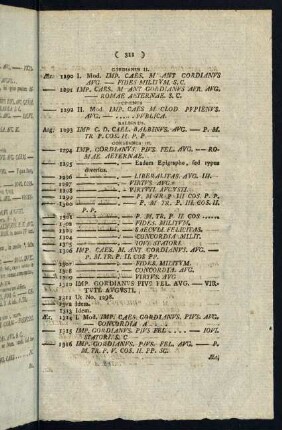 ( 311 )
GORDIANUS II.
Æt. 1290 I. Mod. IMP. CAES. M ANT GORDIANVS
AVG — FIDES MILITVM. S. C.
— 1291 IMP. CAES. M ANT GORDIANVS AFR. AVG.
— ROMAE AETERNAE. S. C.
— 1292 II. Mod. IMP. CAES M CLOD PVPIENVS.
AVG. — PVBLICA.
BALBINUS.
Arg. 1293 IMP C. D. CAEL. BALBINVS. AVG — P. M.
TR P. COS. II. P. P
GORDIANUS III.
— 1294 IMP. GORDIANVS PIVS FEL. AVG — RO-
MAE AETERNAE.
— 1295 — Eadem Epigraphe, sed typus
diversus.
— 1296 — LIBERALITAS. AVG. III.
— 1297 — VIRTVS. AVG.
— 1298 — VIRTVTI AVGVSTI.
— 1299 — P. M. TR. P. III COS. P. P.
— 1300 — P. M. TR. P. III. COS. II.
P. P.
— P. M. TR. P. II COS
— FIDES. MILITVM.
— SAECVLI FELICITAS.
— CONCORDIA MILIT.
— 1305 — IOVI STATORI.
— 1306 IMP. CAES. M. ANT. GORDIANVS. AVG —
P. M. TR P. II COS PP.
— 1307 — FIDES. MILITVM.
— 1308 — CONCORDIA. AVG.
— 1309 — VIRTVS. AVG
— 1310 IMP GORDIANVS PIVS FEL AVG. — VIR-
TVTI AVGVSTI.
— 1311 Ut No. 1298.
— 1312 Idem.
— 1313 Idem.
Æt. 1314 I. Mod. IMP. CAES. GORDIANVS. PIVS. AVG.
— CONCORDIA A
— 1315 IMP. GORDIANVS. PIVS FEL — IOVI.
STATORI. S. C
— 1316 IMP. GORDIANVS. PIVS. FEL. AVG. — P.
M. TR. P. V. COS. II. PP. SC.